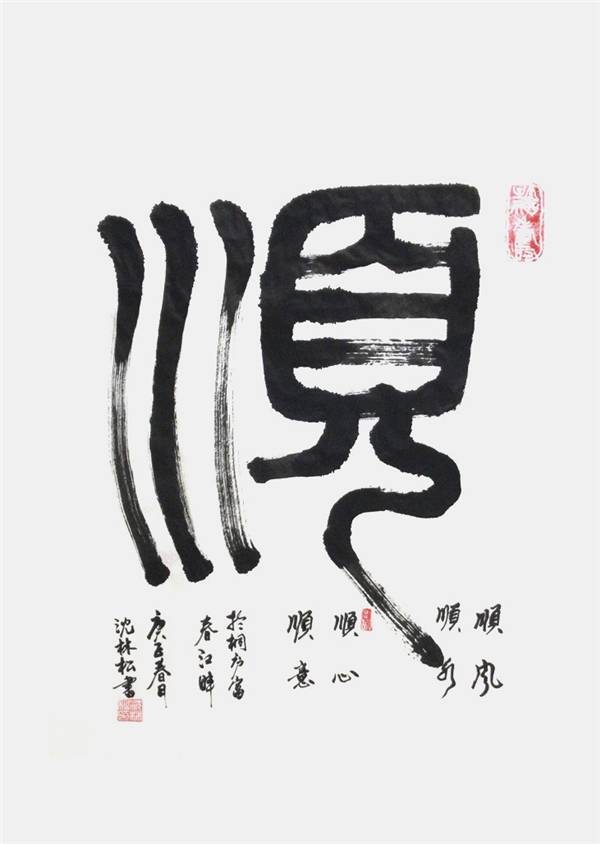 順
順風
順水
順心
順意
於桐庐富
春江畔
庚子春日
沈林松書